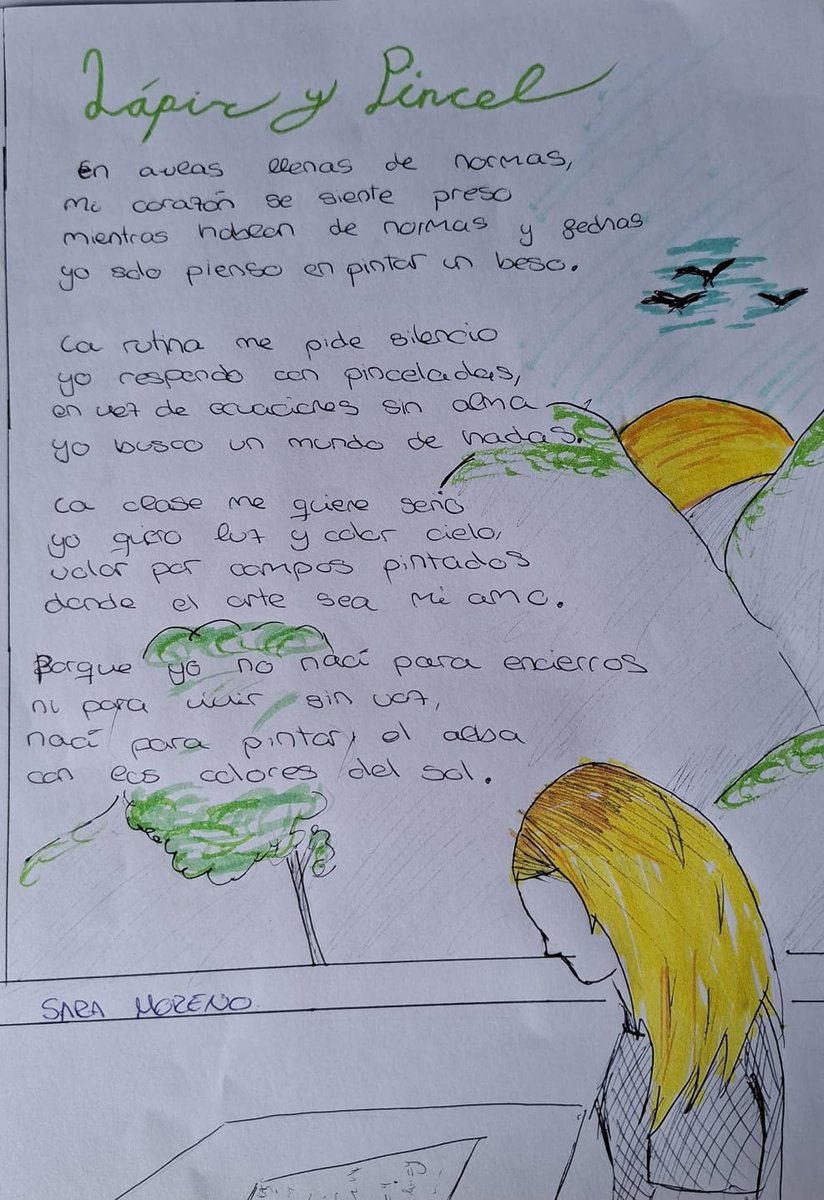 Lápiz y Pincel
En aulas llenas de normas,
mi corazón se siente preso
mientras hablan de normas y fechas
yo solo pienso en pintar un beso.
La rutina me pide silencio
yo respondo con pinceladas,
en vez de ecuaciones sin alma
yo busco un mundo de hadas.
La clase me quiere serio
yo quiero luz y color cielo,
volar por campos pintados
donde el arte sea mi amo.
Porque yo no nací para encierros
ni para vivir sin voz,
nací para pintar, el alba
con los colores del sol.
SARA MORENO